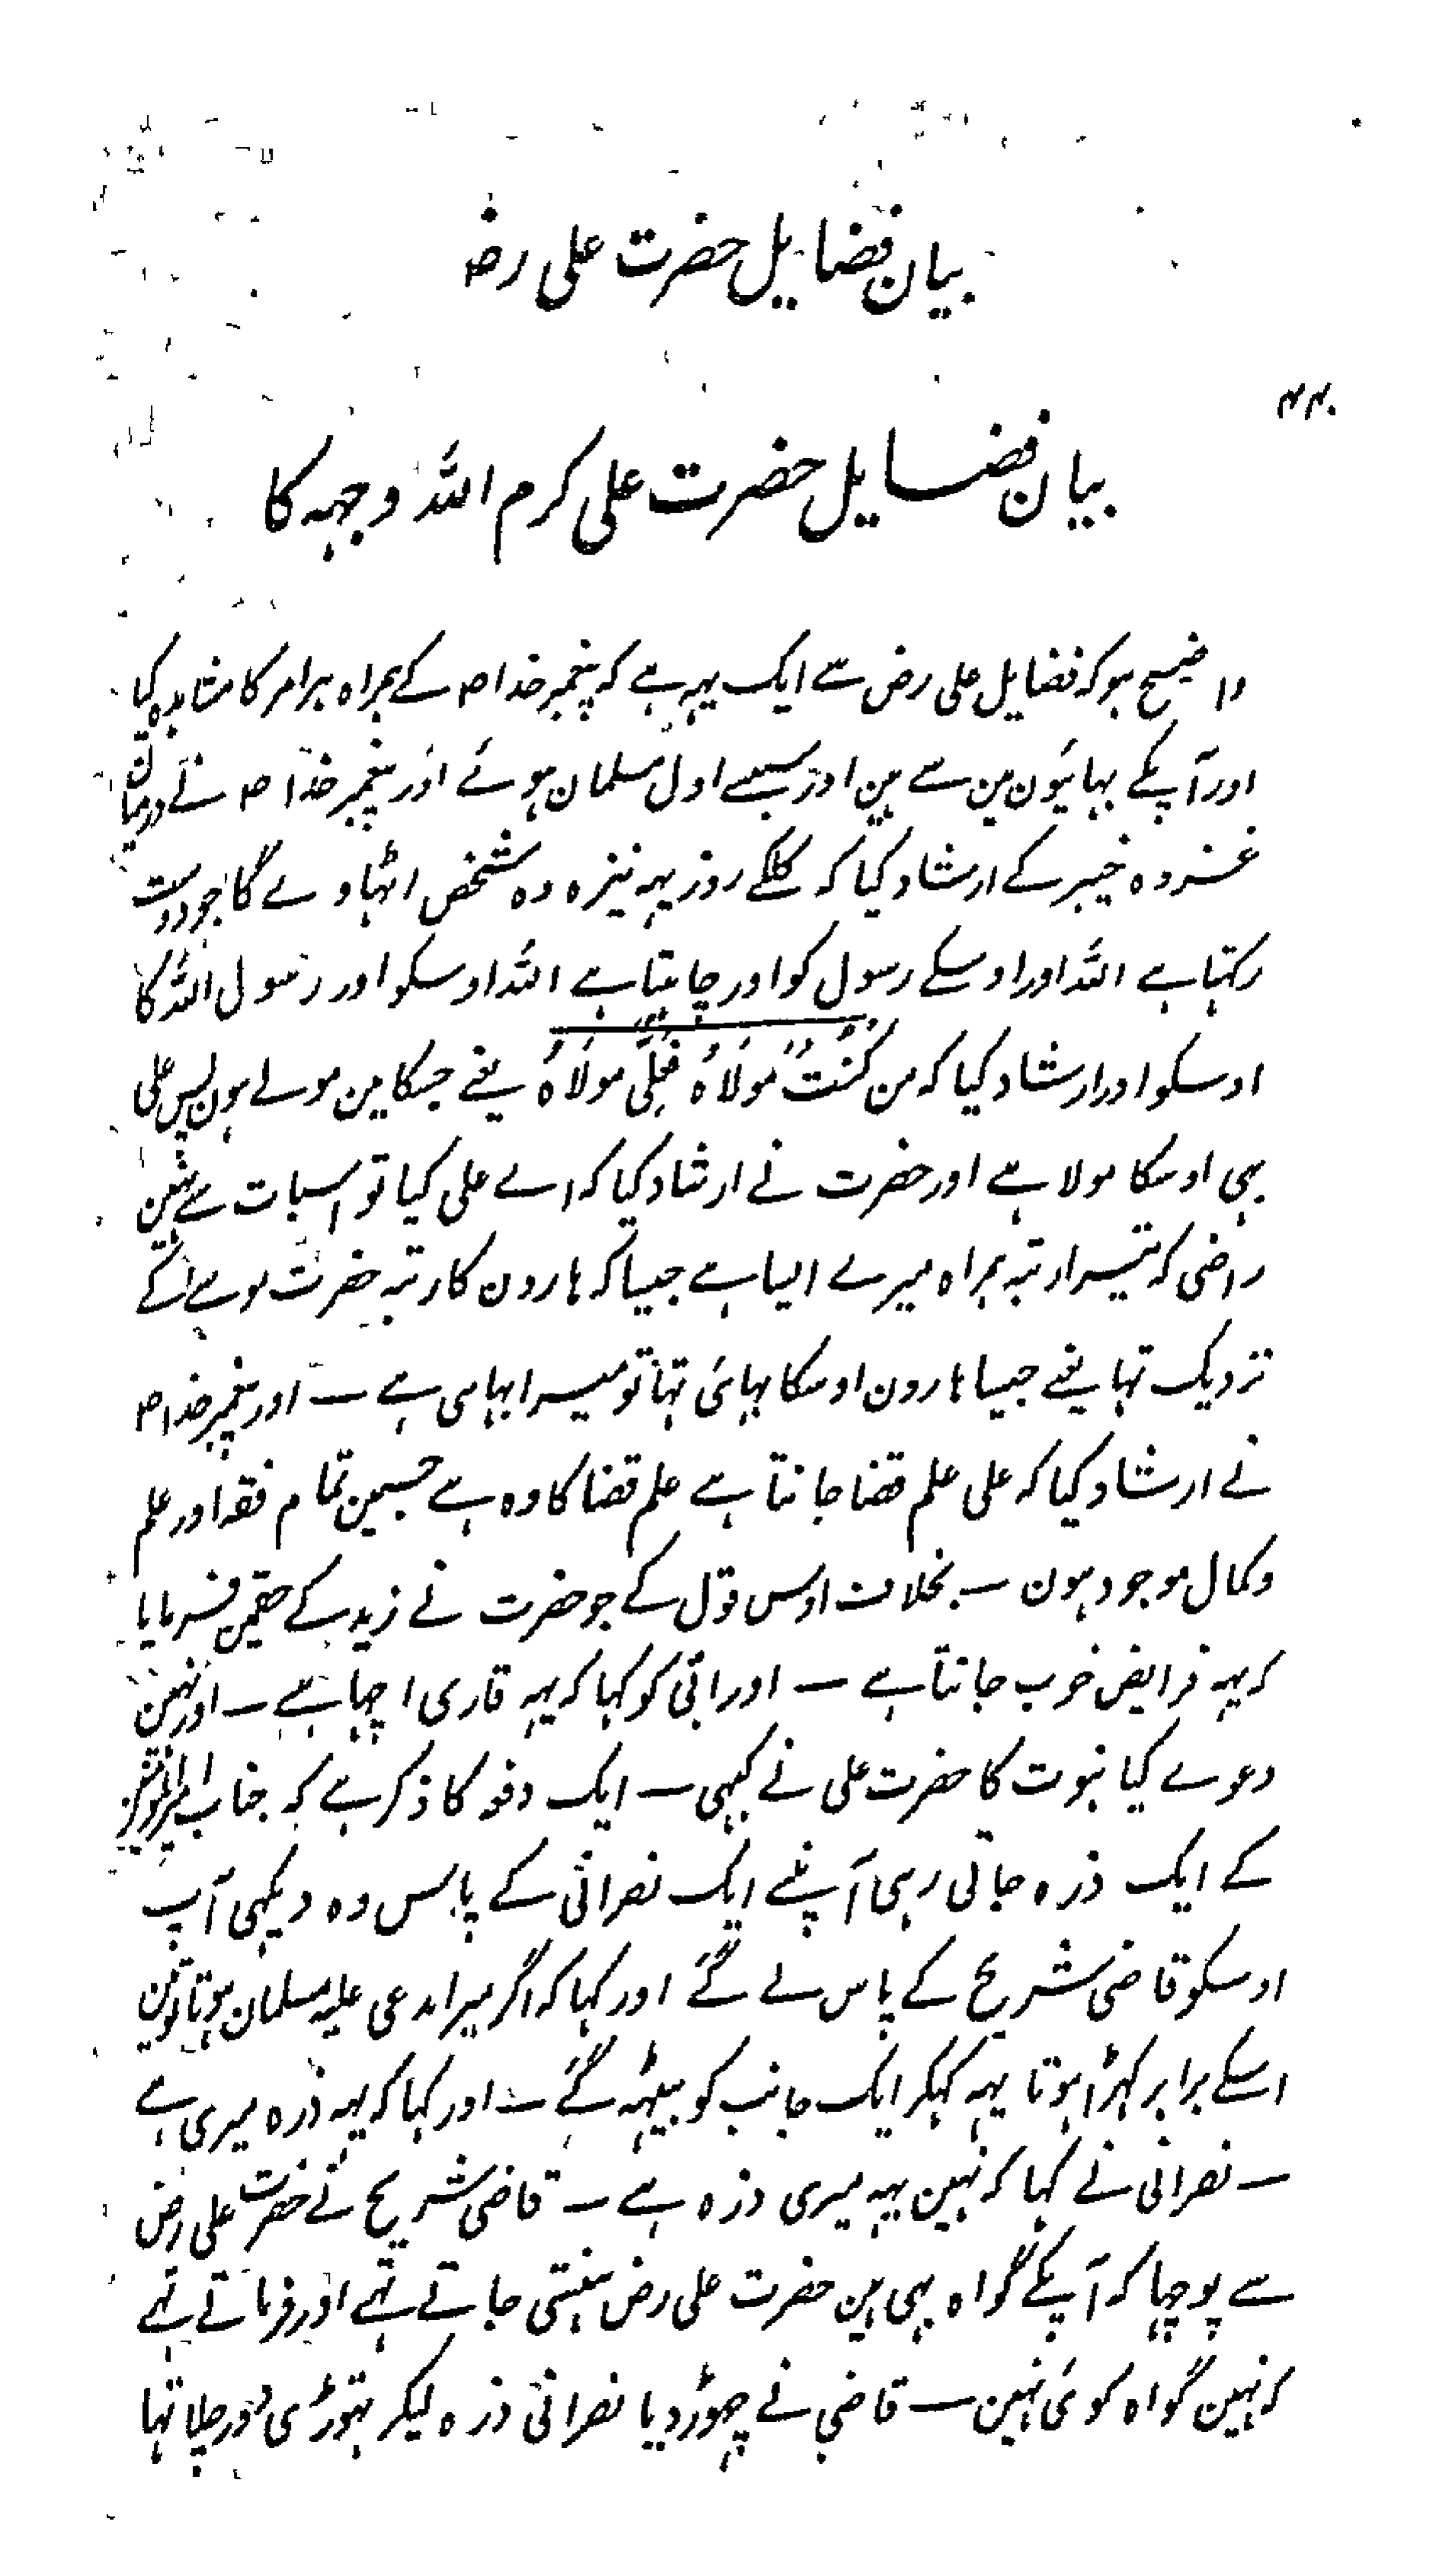 بیان فضایل حضرت علی رضہ
۴۴۰
بیان فضایل حضرت علی کرم اللہ وجہہ کا
واضیح ہو کہ فضایل علی رض سے ایک یہہ ہے کہ پیغمبر خدا ص کے ہمراہ ہر امر کا مشاہدہ کیا
اور آپکے بہائیون مین سے ہین اور سبسے اول مسلمان ہوئے اور پیغمبر خدا ص نے درمیان
غزوہ خیبر کے ارشاد کیا کہ کلکے روز یہہ نیزہ وہ شخص اٹہاوے گا جو دوست
رکہتا ہے اللہ اور اوسکے رسول کو اور چاہتا ہے اللہ اوسکو اور رسول اللہ کا
اوسکو اور ارشاد کیا کہ من کُنْتُ مُولَاہُ فَعَلِیٌّ مولَاہُ یعنے جسکا مین مولے ہون پس علی
بہی اوسکا مولا ہے اور حضرت نے ارشاد کیا کہ اے علی کیا تو اسبات سے نہین
راضی کہ تیسرا رتبہ ہمراہ میرے ایسا ہے جیسا کہ ہارون کا رتبہ حضرت موسے کے
نزدیک تہا یعنے جیسا ہارون اوسکا بہائی تہا تو میرا بہای ہے ۔ اور پیغمبر خدا ص
نے ارشاد کیا کہ علی علم قضا جانتا ہے علم قضا کا وہ ہے جسمین تمام فقہ اور علم
وکمال موجود ہون ۔ بخلاف اوس قول کے جو حضرت نے زید کے حقمین فرمایا
کہ یہہ فرایض خوب جانتا ہے ۔ اور ابی کو کہا کہ یہہ قاری اچہا ہے ۔ اور نہین
دعوے کیا نبوت کا حضرت علی نے کبہی ۔ ایک دفعہ کا ذکر ہے کہ جناب امیرالمومنین
کے ایک ذرہ جاتی رہی آپنے ایک نصرانی کے پاس وہ دیکہی آپ
اوسکو قاضی شریح کے پاس لے گئے اور کہا کہ اگر میرا مدعی علیہ مسلمان ہوتا تو مین
اسکے برابر کہڑا ہوتا یہہ کہکر ایک جانب کو بیٹہہ گئے ۔ اور کہا کہ یہہ ذرہ میری ہے
۔ نصرانی نے کہا کہ نہین یہہ میری ذرہ ہے ۔ قاضی شریح نے حضرت علی رض
سے پوچہا کہ آپکے گواہ بہی ہین حضرت علی رض ہنستی جاتے تہے اور فرماتے تہے
کہ نہین گواہ کوئی نہین ۔ قاضی نے چہوڑ دیا نصرانی ذرہ لیکر تہوڑی دور چلا تہا